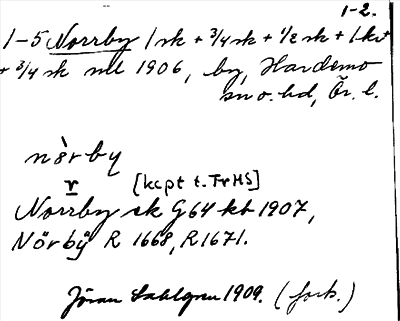 1-2.
1-5 Norrby 1 sk + 3/4 sk + 1/2 sk + 1 kv
+ 3/4 sk mtl 1906, by, Hardemo
sn o. hd, Ör. l.
nòrby
r [kcpt t. TrHS]
Norrby ek G64 kb 1907,
Nörbÿ R 1668, R 1671.
Jöran Sahlgren 1909. (forts.)